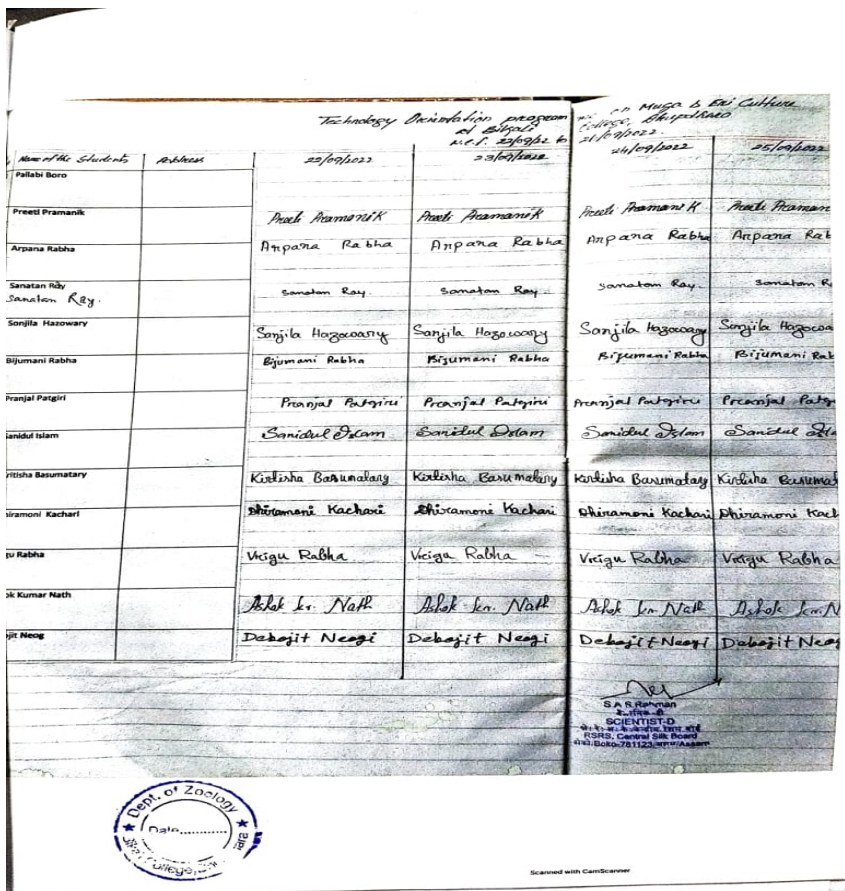 Technology Orientation program on Muga & Eri Culture
at Bikali College,
w.e.f. 22/09/22 to
Name of the Students Address 22/09/2022 23/09/2022 24/09/2022 25/09/2022
Pallabi Boro
Preeti Pramanik Preeti Pramanik Preeti Pramanik Preeti Pramanik Preeti Praman
Arpana Rabha Arpana Rabha Arpana Rabha Arpana Rabha Arpana Rab
Sanatan Ray sanatan Ray. sanatan Ray. sanatan Ray. sanatan R
Sanatan Ray.
Sonjila Hazowary Sonjila Hazowary Sonjila Hazowary Sonjila Hazowary Sonjila Hazowa
Bijumani Rabha Bijumani Rabha Bijumani Rabha Bijumani Rabha Bijumani Rab
Pranjal Patgiri Pranjal Patgiri Pranjal Patgiri Pranjal Patgiri Pranjal Patg
anidul Islam Sanidul Islam Sanidul Islam Sanidul Islam Sanidul Isl
ritisha Basumatary Kirtisha Basumatary Kirtisha Basumatary Kirtisha Basumatary Kirtisha Basumat
iramoni Kachari Dhiramoni Kachari Dhiramoni Kachari Dhiramoni Kachari Dhiramoni Kach
gu Rabha Vrigu Rabha Vrigu Rabha Vrigu Rabha Vrigu Rabha
ok Kumar Nath Ashok kr. Nath Ashok kr. Nath Ashok kr. Nath Ashok kr. N
jit Neog Debojit Neogi Debojit Neogi Debojit Neogi Debojit Neog
S.A.S.Rahman
SCIENTIST-D
RSRS, Central Silk Board
Boko-781123
Dept. of Zoology
Date............
College,
Scanned with CamScanner